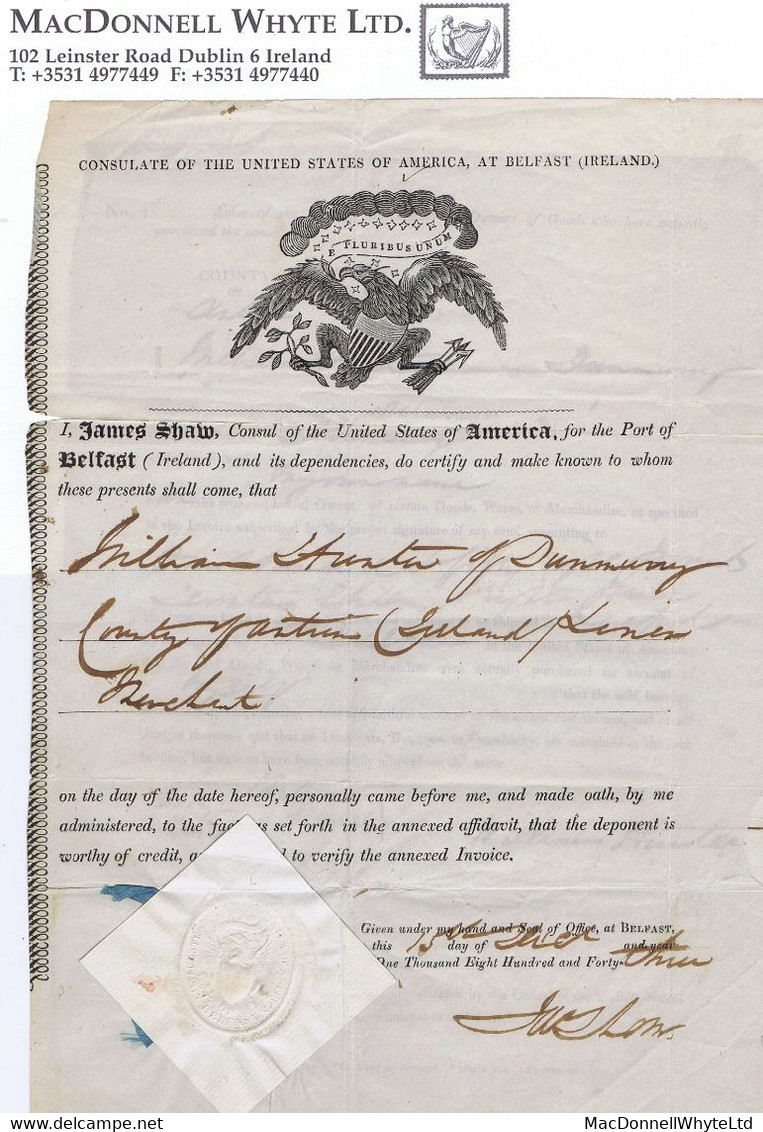 MACDONNELL WHYTE LTD.
102 Leinster Road Dublin 6 Ireland
T: +3531 4977449 F: +3531 4977440
CONSULATE OF THE UNITED STATES OF AMERICA, AT BELFAST (IRELAND.)
E PLURIBUS UNUM
I, James Shaw, Consul of the United States of America, for the Port of
Belfast (Ireland), and its dependencies, do certify and make known to whom
these presents shall come, that
William Hunter of Dunmurry
County of Antrim (Ireland) Linen
Merchant
on the day of the date hereof, personally came before me, and made oath, by me
administered, to the facts as set forth in the annexed affidavit, that the deponent is
worthy of credit, to verify the annexed Invoice.
Given under my hand and Seal of Office, at BELFAST,
this 15th day of and year
One Thousand Eight Hundred and Forty-three
Jas Shaw
delcampe.net
MacDonnellWhyteLtd